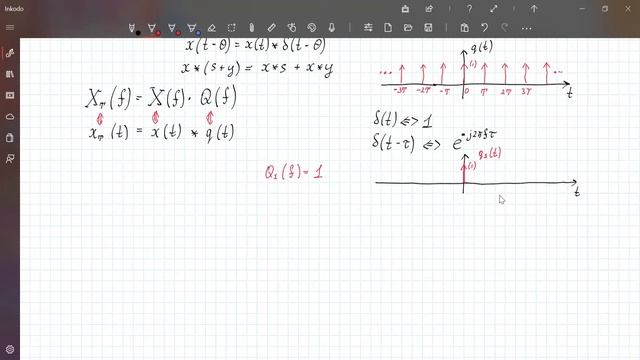 Inkodo
x(t-θ) = x(t) * δ(t-θ)
x * (s+y) = x * s + x * y
X_π(f) = X(f) · Q(f)
x_π(t) = x(t) * q(t)
Q₁(f) = 1
q(t)
... (1) ...
-3T -2T -T 0 T 2T 3T t
δ(t) ⇔ 1
δ(t-τ) ⇔ e^{-j2πfτ}
q₁(t)
(1)
t